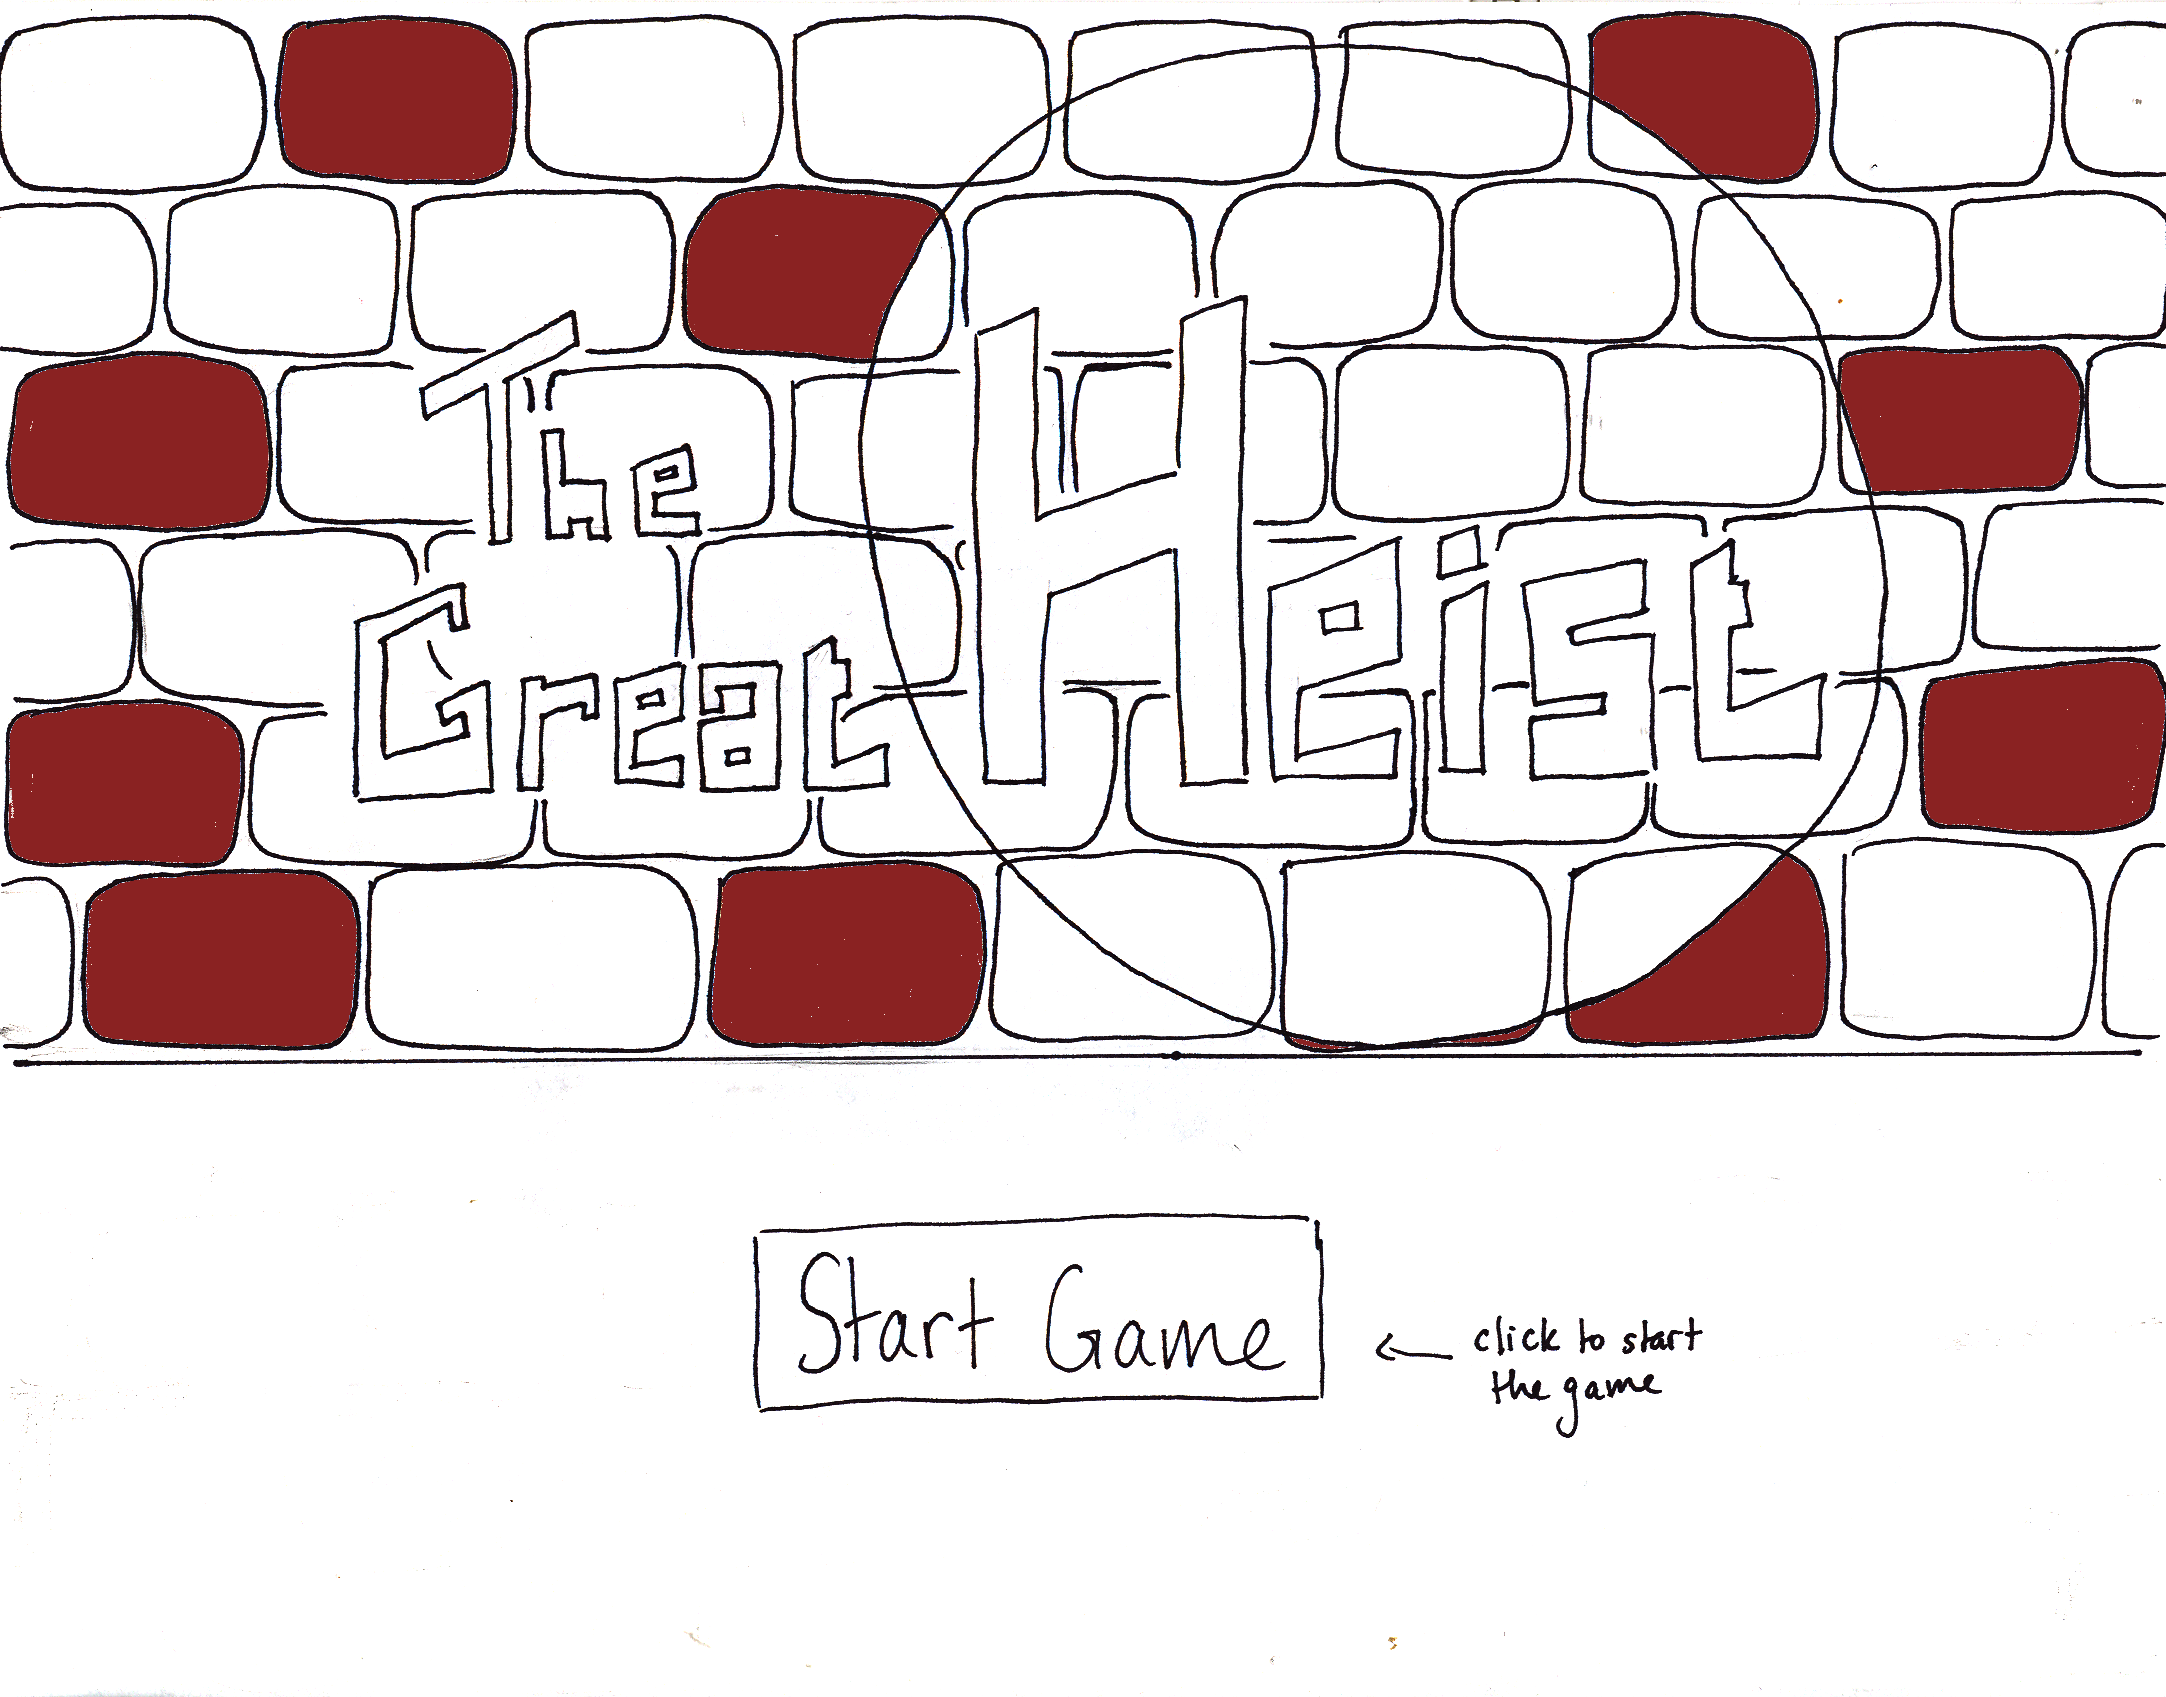 The
Great Heist
Start Game
click to start
the game